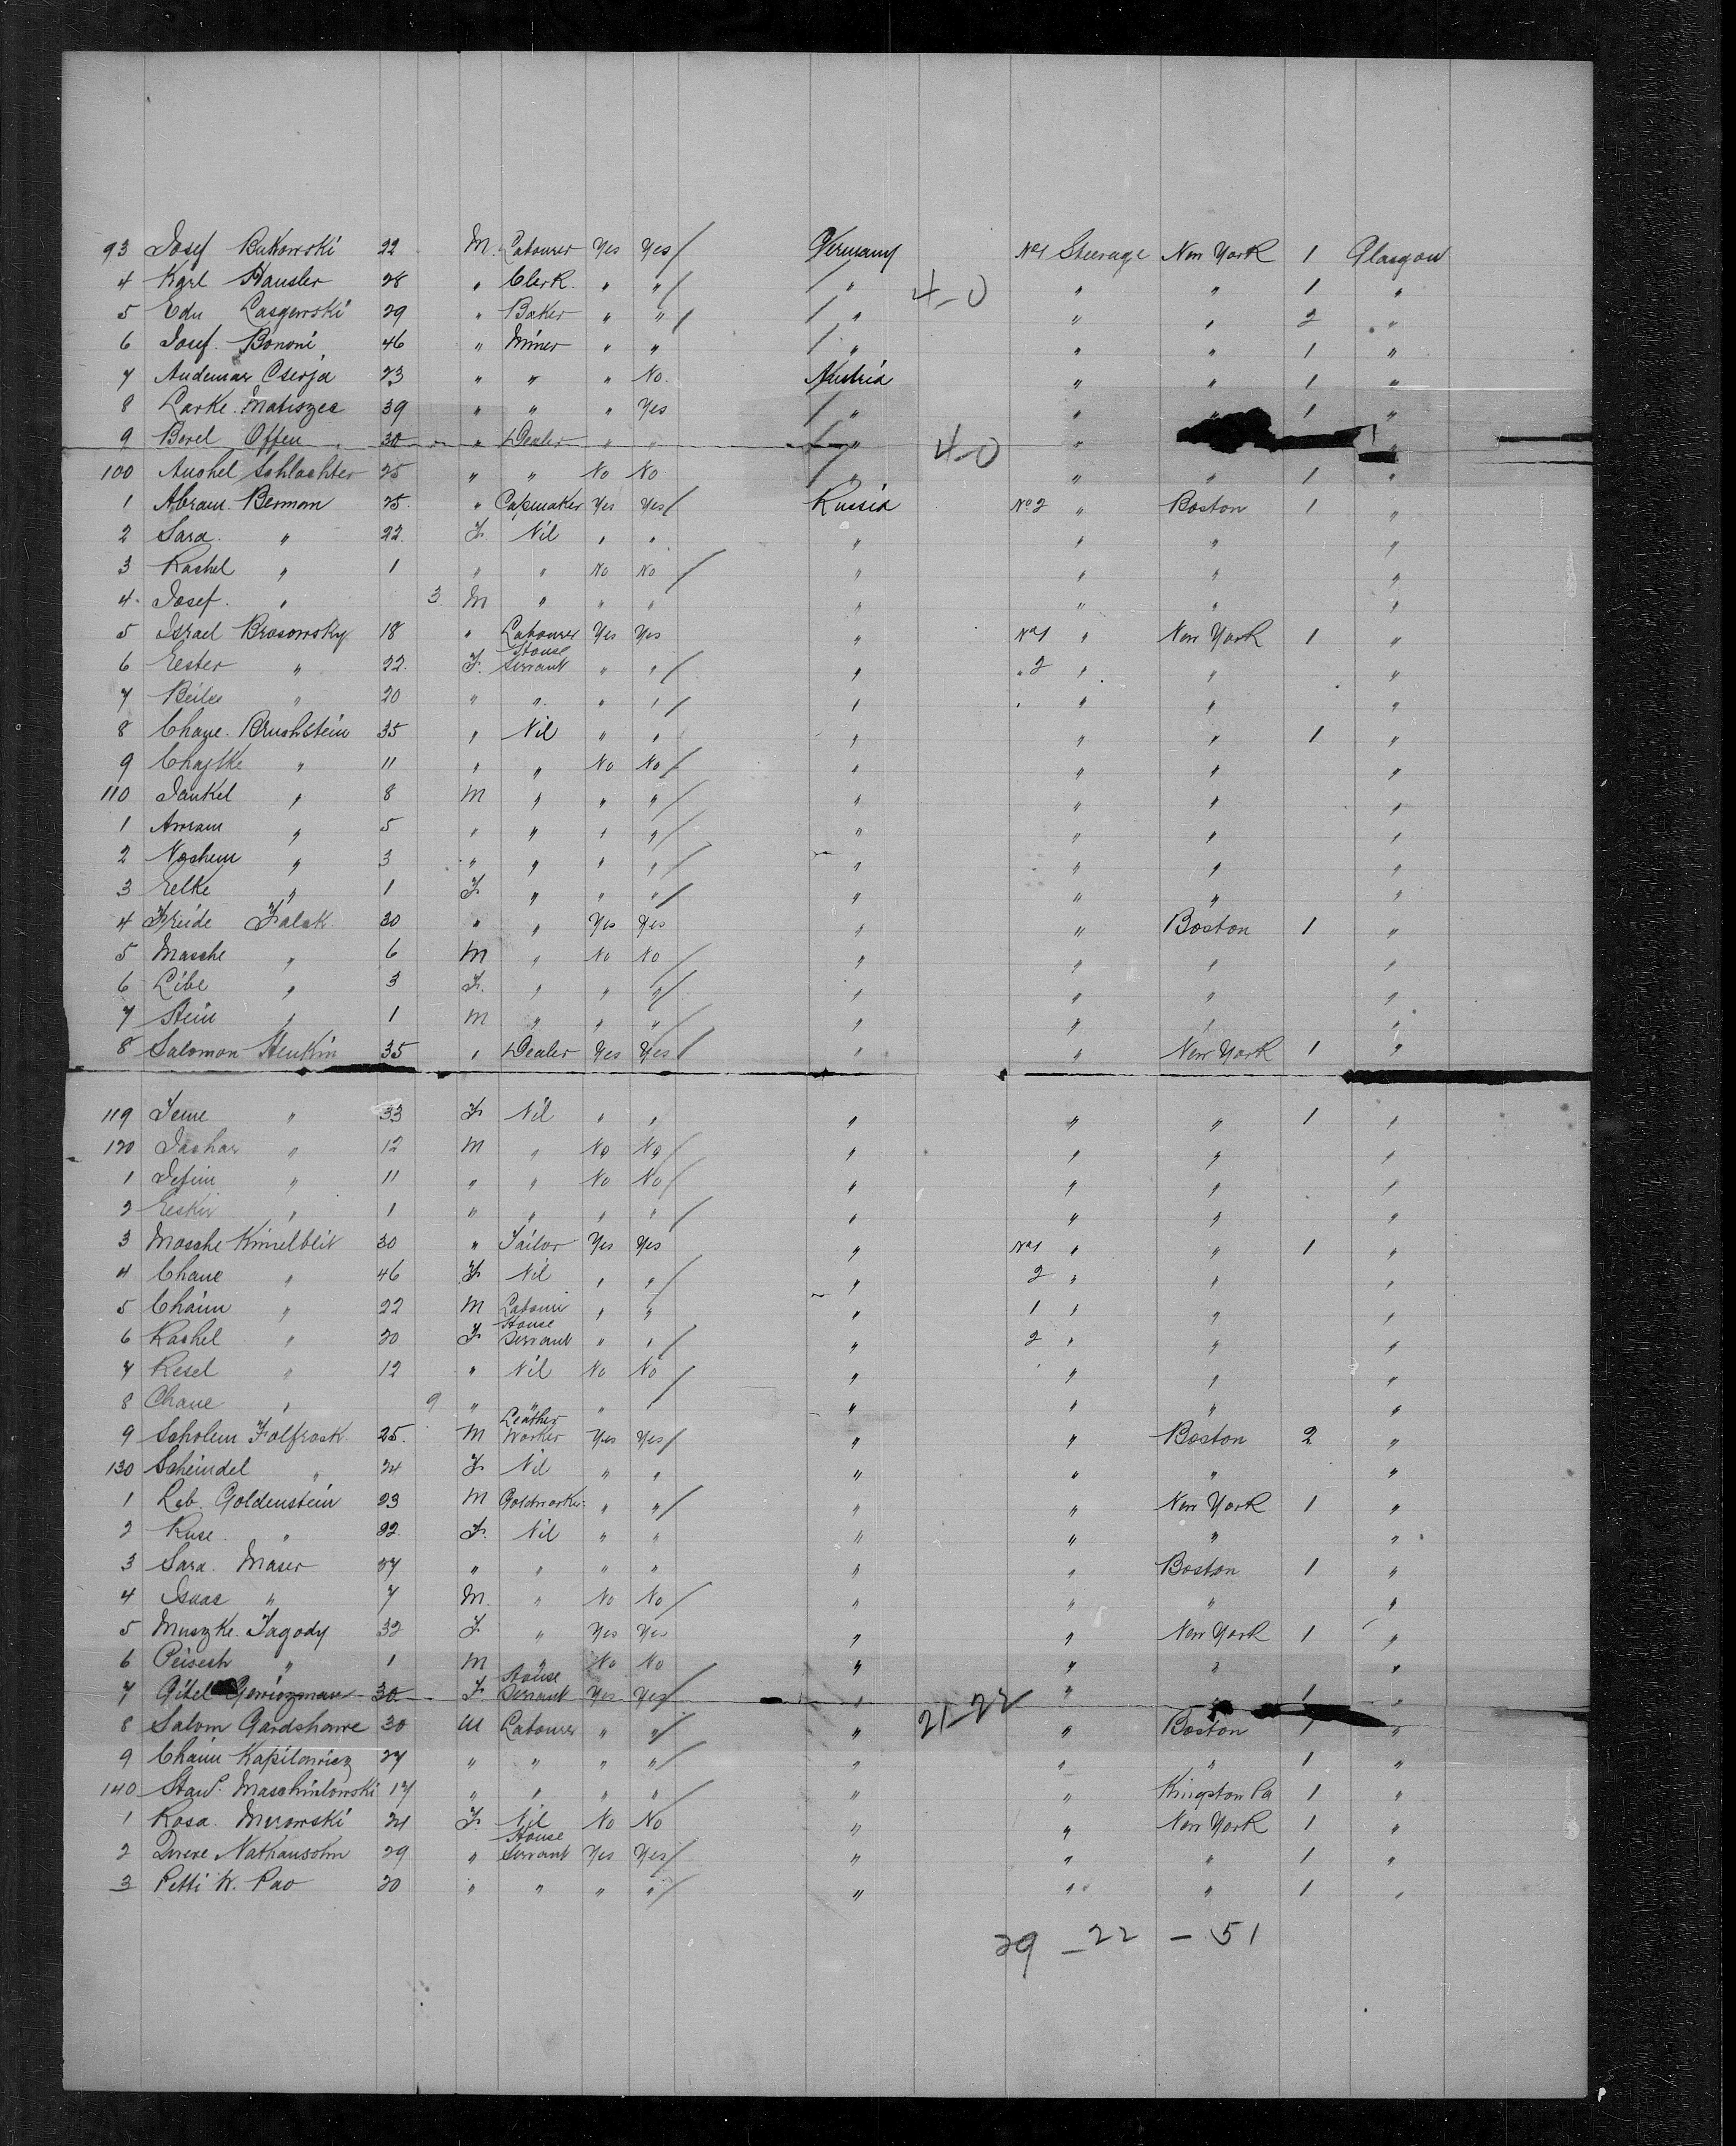 93 Josef Bukowski 22 M. Labourer Yes Yes / Germany No 1 Steerage New York 1 Glasgow
4 Karl Hausler 28 " Clerk. " " / " 4-0 " " 1 "
5 Edu Lasgewski 29 " Baker " " / " " " 2 "
6 Josef. Bononi 46 " Miner " " " " " 1 "
7 Andemar Cserja 23 " " " No. Austria " " 1 "
8 Larke. Matiszec 39 " " " Yes " " " 1 "
9 Berel Offen 30 " Dealer " " " 4-0 " "
100 Anshel Schlachter 25 " " No No " " " 1 "
1 Abram. Berman 25. " Capmaker Yes Yes / Russia No 2 " Boston 1 "
2 Sara. " 22. F. Nil " " " " " "
3 Rachel " 1 " " No No / " " " "
4. Josef. " 3 M " " " " " " "
5 Israel Brosowsky 18 " Labourer Yes Yes " No 1 " New York 1 "
6 Eester " 22. F. House Servant " " / " " 2 " " "
7 Beile " 20 " " " " / " " " " "
8 Chaye. Bruchstein 35 " Nil " " " " " 1 "
9 Chajtke " 11 " " No No / " " " "
110 Jankel " 8 M " " " / " " " "
1 Avram " 5 " " " " / " " " "
2 Nochem " 3 " " " " / " " " "
3 Eelke " 1 F. " " " / " " " "
4 Freide Falak 30 " " Yes Yes " " Boston 1 "
5 Masche " 6 M " No No / " " " "
6 Libe " 3 F. " " " / " " " "
7 Stein " 1 M " " " / " " " "
8 Salomon Henkin 35 " Dealer Yes Yes / " " New York 1 "
119 Jeme " 33 F. Nil " " " " " 1 "
120 Jachar " 12 M " No No / " " " "
1 Jefim " 11 " " No No / " " " "
2 Eeskir " 1 " " " " / " " " "
3 Masche Kimelblit 30 " Tailor Yes Yes " No 1 " " 1 "
4 Chane " 46 F. Nil " " / " 2 " " "
5 Chaim " 22 M Labour " " " 1 " " "
6 Rachel " 20 F. House Servant " " / " 2 " " "
7 Resel " 12 " Nil No No / " " " "
8 Chane " 9 " " " " / " " " "
9 Scholem Falfrock 25. M Leather Worker Yes Yes / " " Boston 2 "
130 Scheindel " 24 F. Nil " " " " " "
1 Leb. Goldenstein 23 M Goldworker " " / " " New York 1 "
2 Ruse. " 22. F. Nil " " " " " "
3 Sara. Maser 27 " " " " " " Boston 1 "
4 Isaac " 7 M. " No No / " " " "
5 Muszke. Jagody 32 F. " Yes Yes " " New York 1 "
6 Peisech " 1 M " No No " " " "
7 Gitel 30 F. House Servant Yes Yes / " 21-22 " " 1 "
8 Salom Gardshowe 30 M Labourer " " / " " Boston 1 "
9 Chaim Kapilowicz 27 " " " " / " " " 1 "
140 Stan. Maschinlowski 17 " " " " / " " Kingston Pa 1 "
1 Rosa. Murowski 24 F. Nil No No " " New York 1 "
2 Nathansohn 29 " House Servant Yes Yes / " " " 1 "
3 Petti W. Pao 20 " " " " / " " " 1 "
29 - 22 - 51